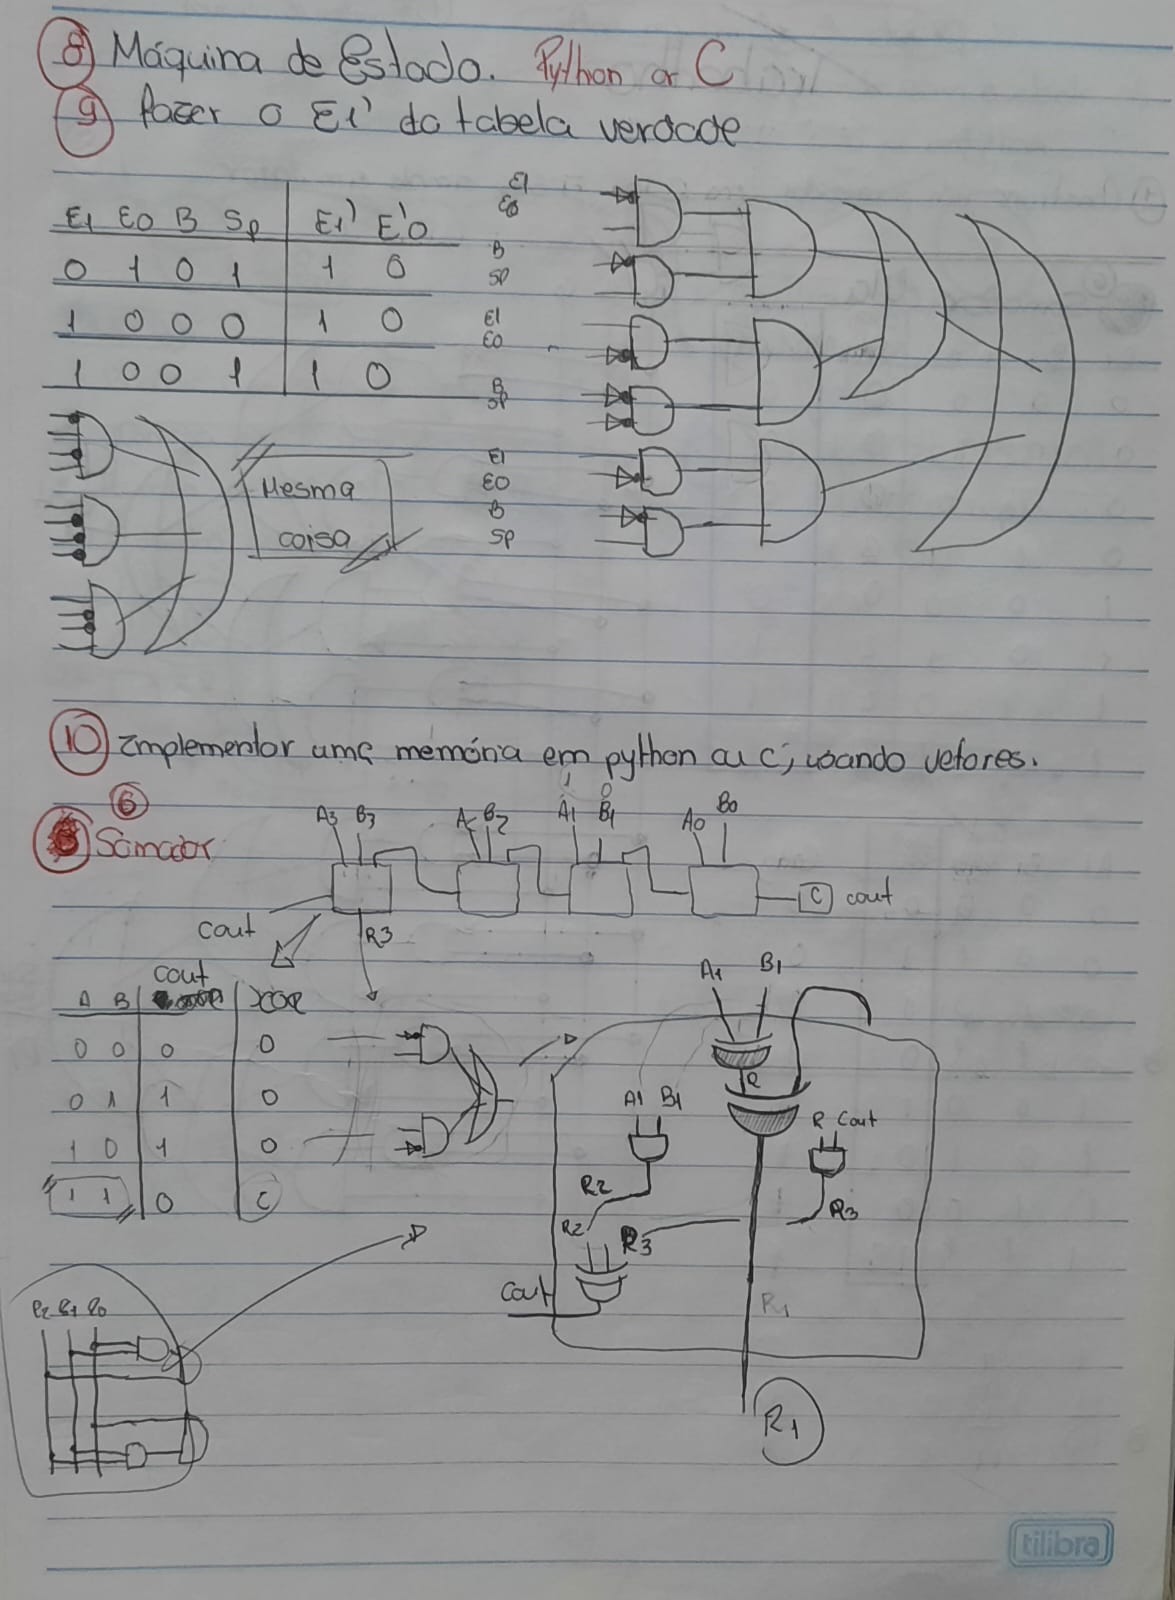 8 Máquina de Estado. Python or C
9 fazer o E1' da tabela verdade
E1 E0 B Sp E1' E'0
0 1 0 1 1 0
1 0 0 0 1 0
1 0 0 1 1 0
E1
E0
B
SP
E1
E0
B
SP
E1
E0
B
Sp
Mesma
coisa
10 Implementar uma memória em python ou C, usando vetores.
6
Somador
A3 B3 A2 B2 A1 B1 A0 B0
1 0
C cout
cout
R3
cout
A B XOR
0 0 0 0
0 1 1 0
1 0 1 0
1 1 0 C
A1 B1
R
A1 B1
R Cout
R2
R3
R2 R3
Cout
R1
R1
E2 E1 E0
tilibra